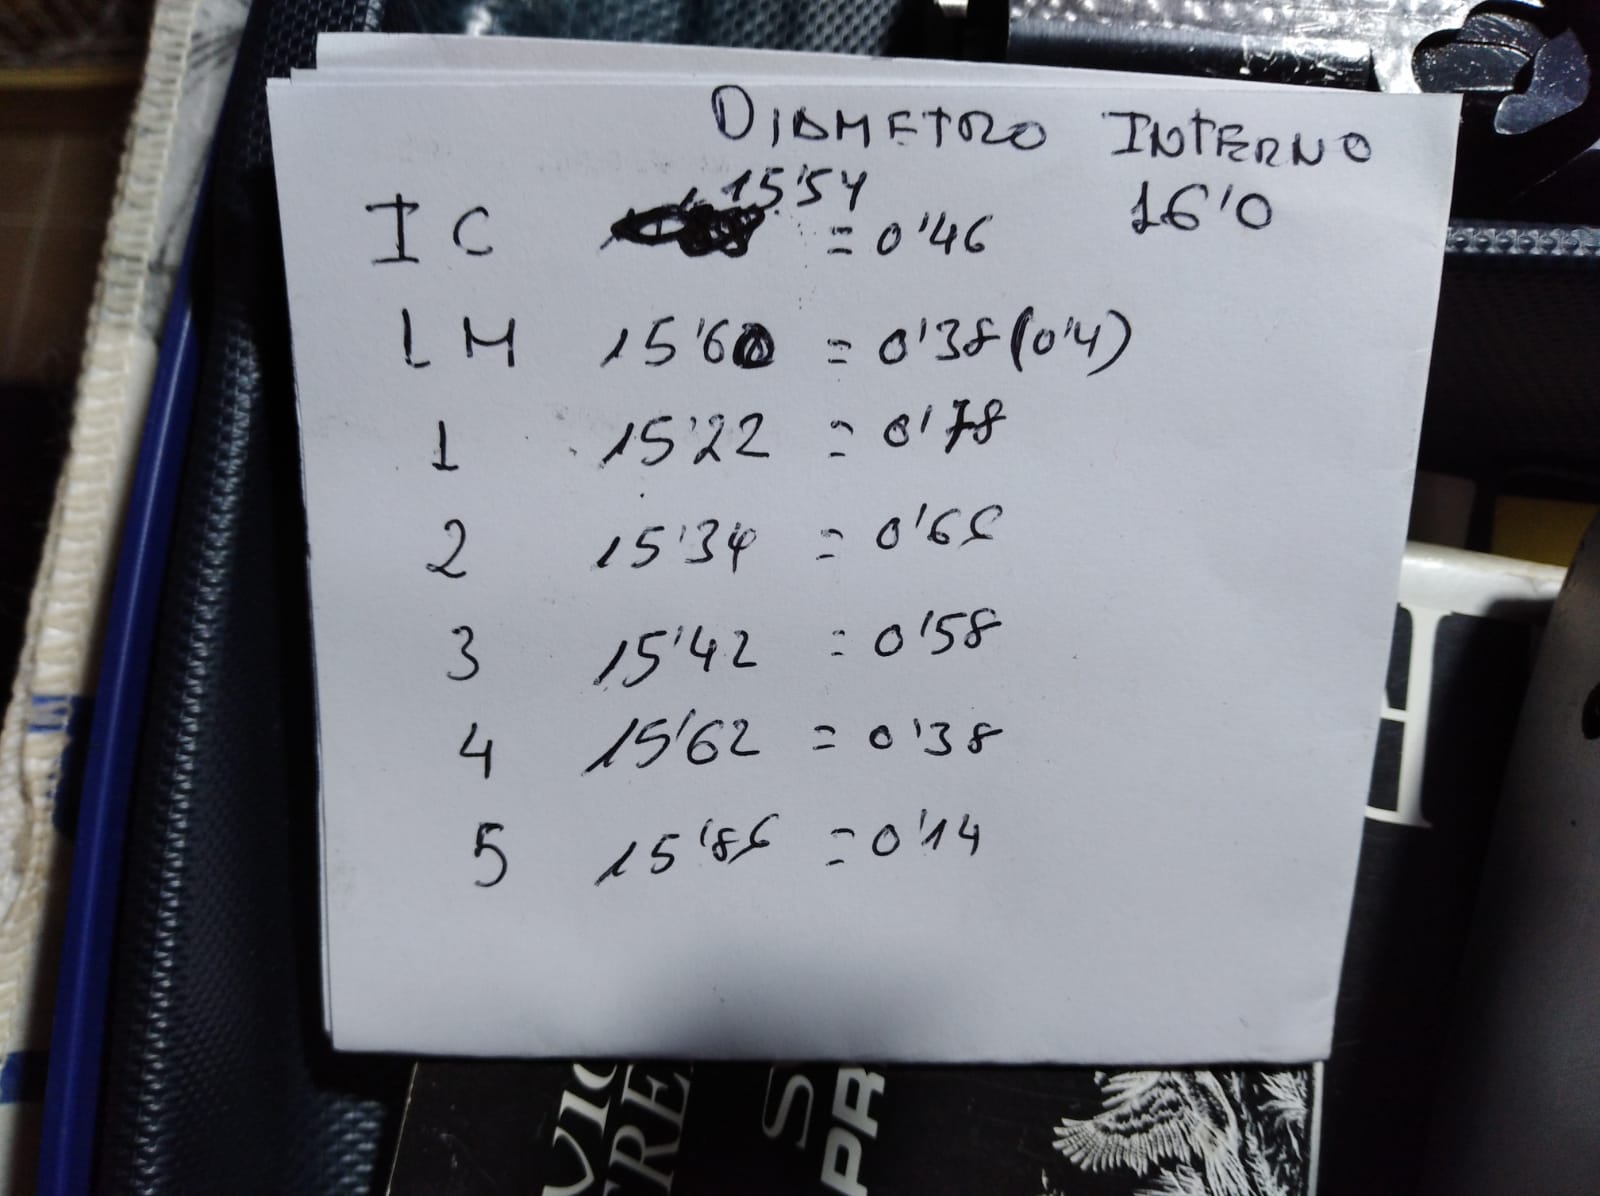 DIAMETRO INTERNO
16'0
IC 15'54 = 0'46
LM 15'60 = 0'38 (0'4)
1 15'22 = 0'78
2 15'34 = 0'66
3 15'42 = 0'58
4 15'62 = 0'38
5 15'86 = 0'14
VIC
TRE
S
PR